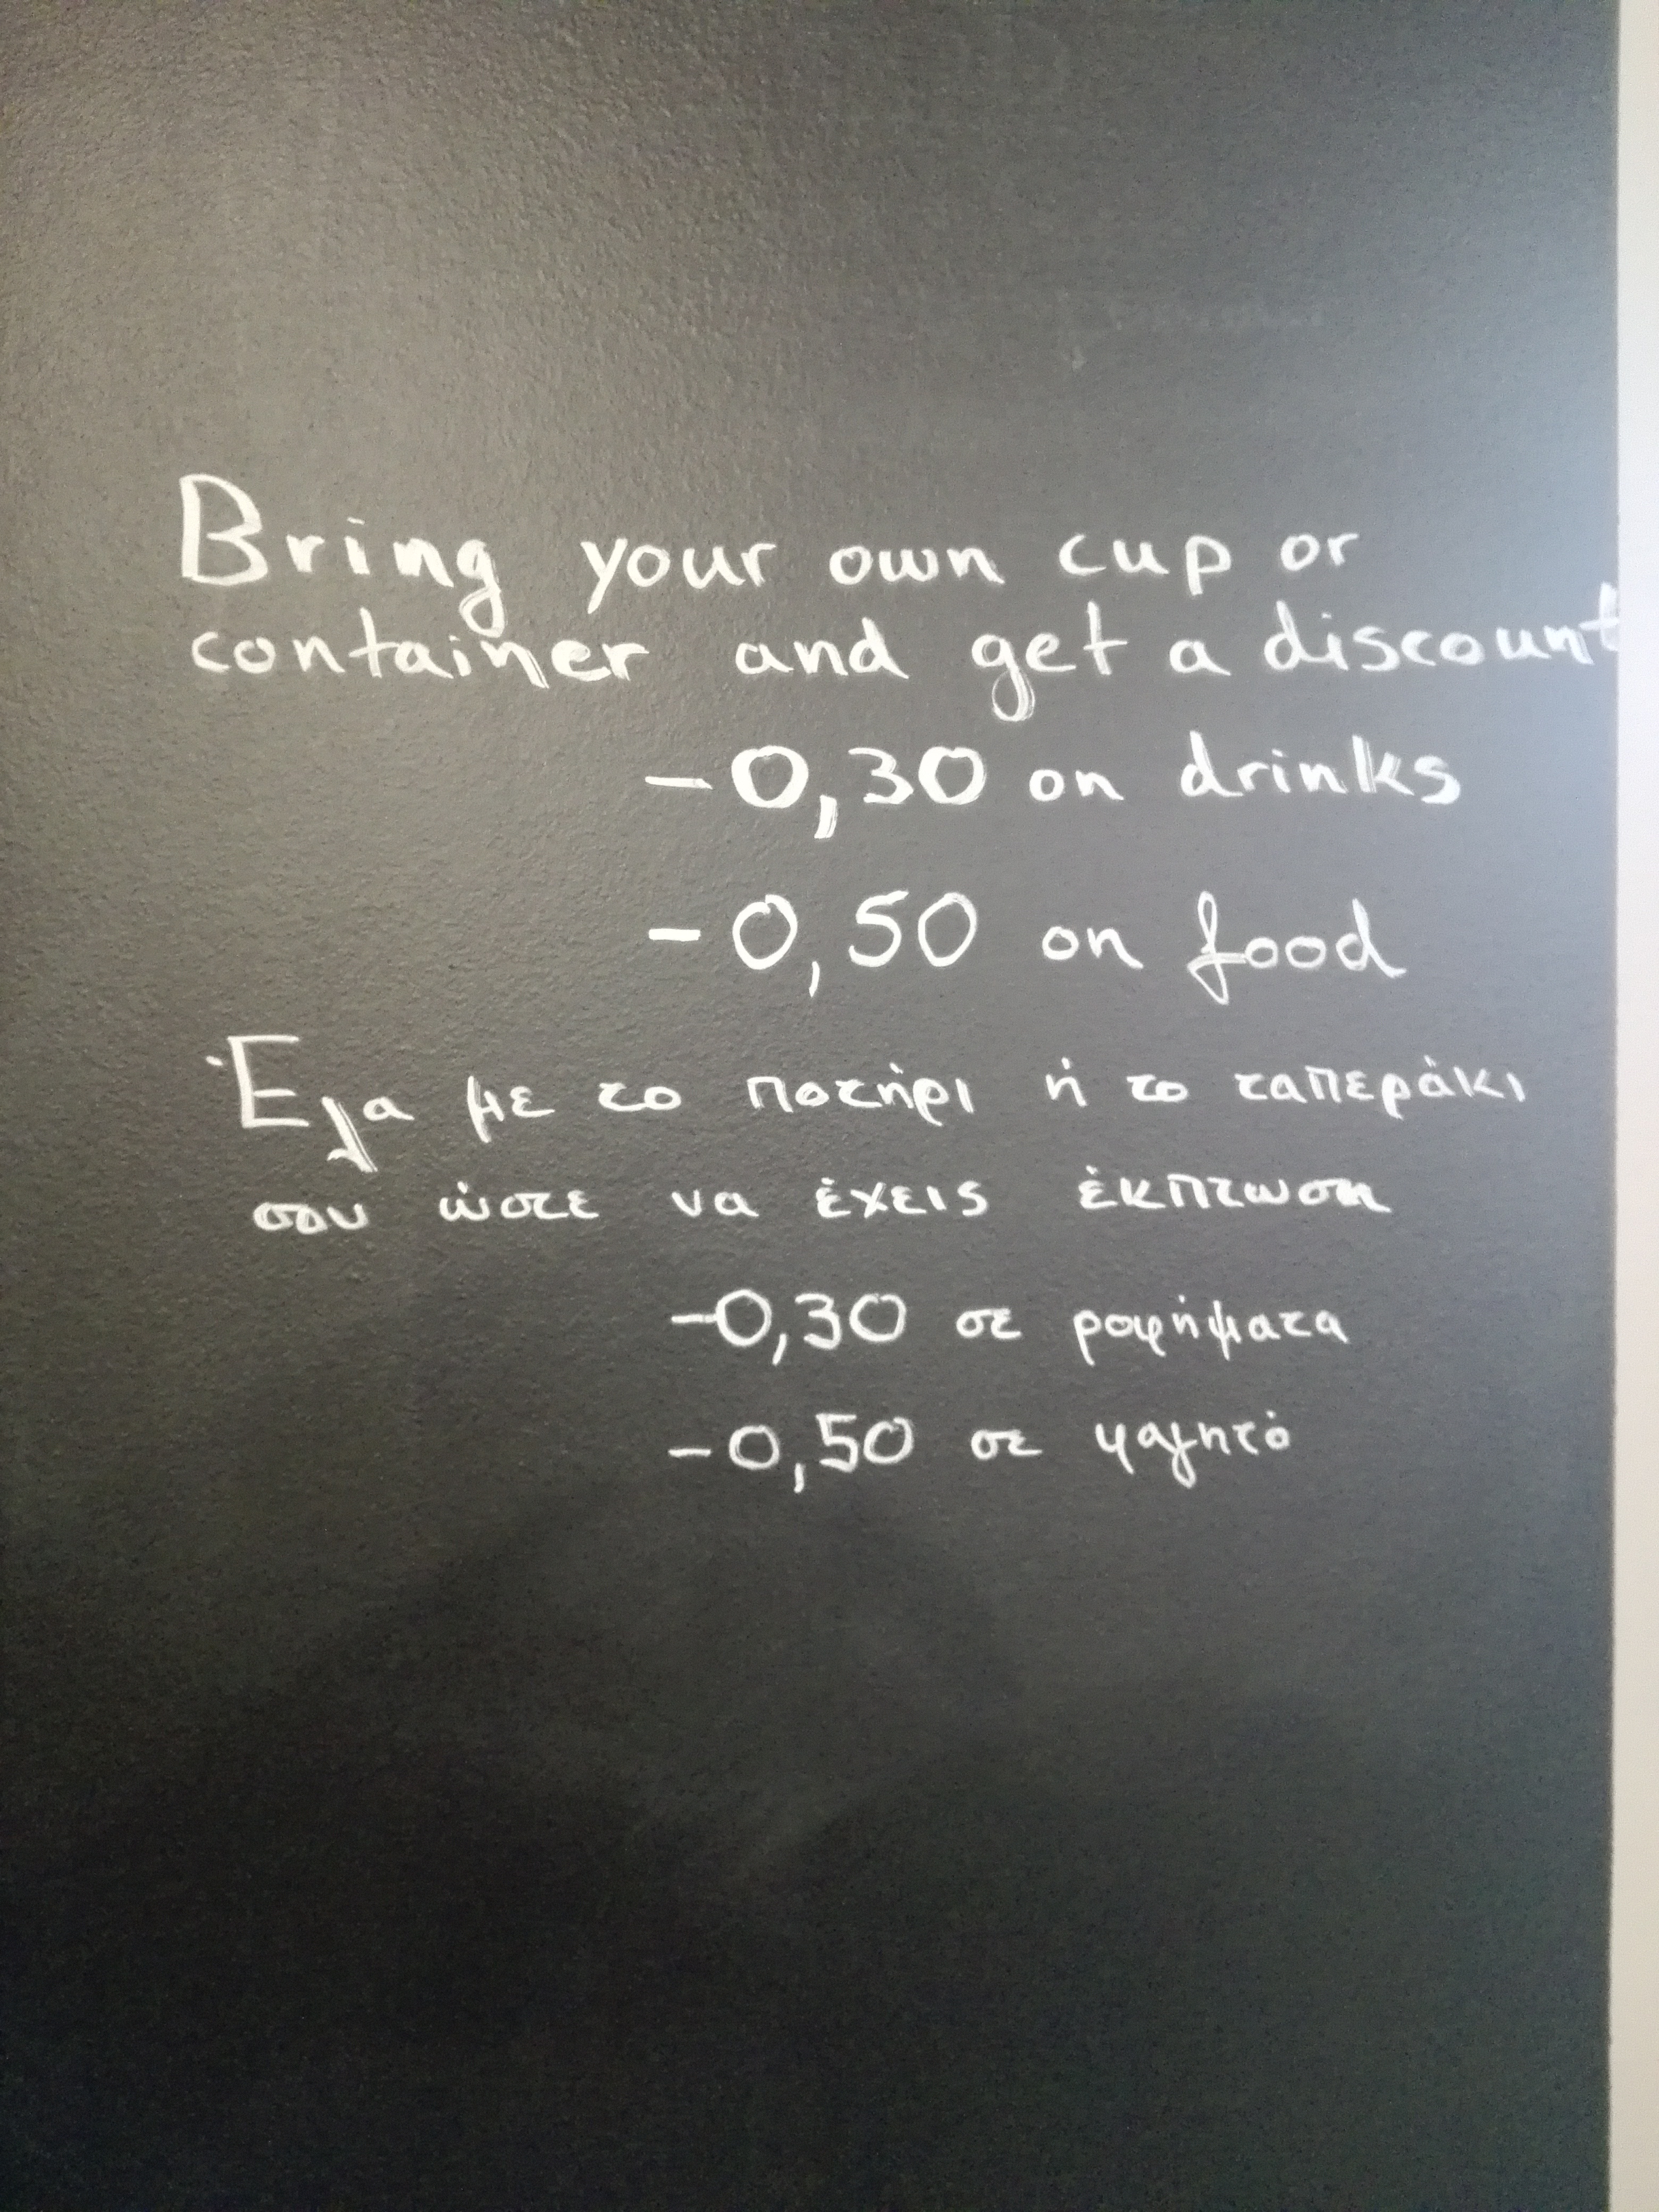 Bring your own cup or
container and get a discount
-0,30 on drinks
-0,50 on food
Έλα με το ποτήρι ή το ταπεράκι
σου ώστε να έχεις έκπτωση
-0,30 σε ροφήματα
-0,50 σε φαγητό